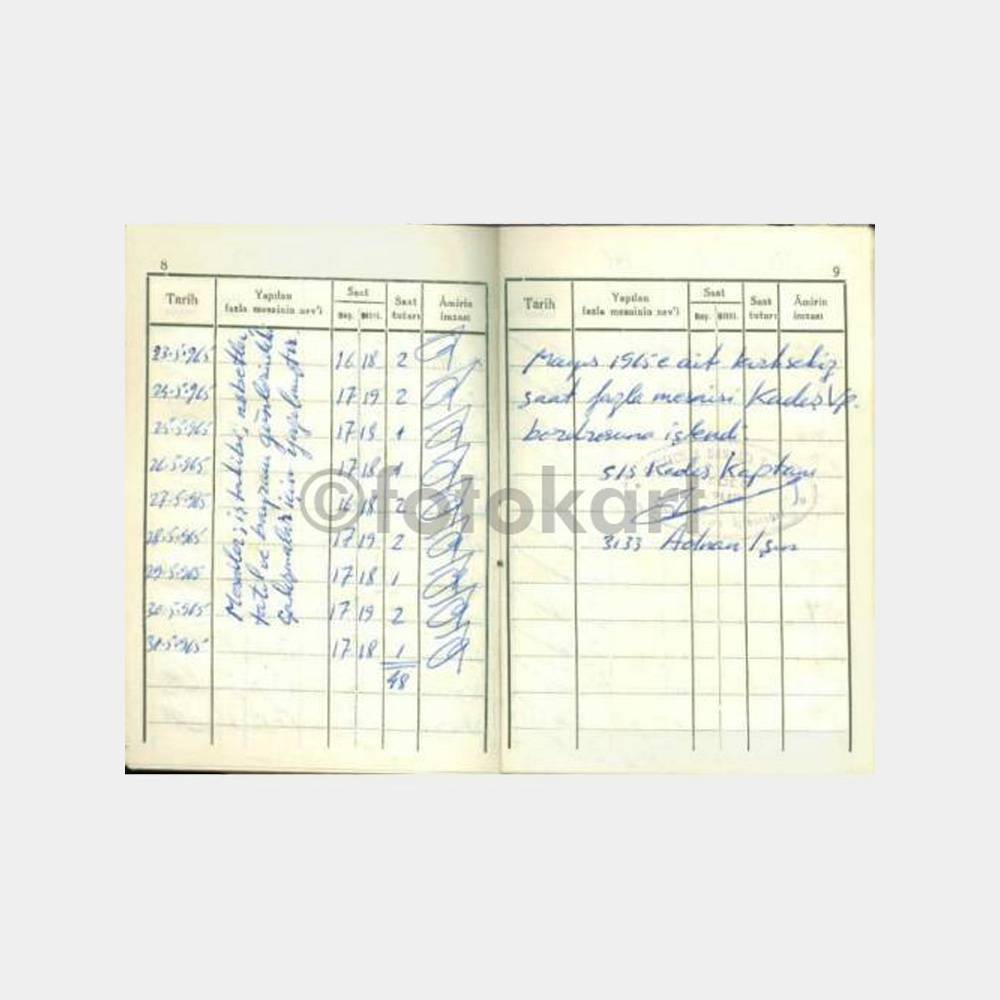 8
Tarih Yapılan fazla mesainin nev'i Saat Saat tutarı Âmirin imzası
Baş. Bitti.
23-5-965 16 18 2
24-5-965 17 19 2
25-5-965 17 18 1
26-5-965 17 18 1
27-5-965 16 18 2
28-5-965 17 19 2
29-5-965 17 18 1
30-5-965 17 19 2
31-5-965 17 18 1
48
Mesailer, iş takibi, nöbetler,
tatil ve bayram günlerindeki
çalışmalar için yapılmıştır.
9
Tarih Yapılan fazla mesainin nev'i Saat Saat tutarı Âmirin imzası
Baş. Bitti.
Mayıs 1965 e ait kırksekiz
saat fazla mesaisi Kadeş Vp.
bordrosuna işlendi.
S/S Kadeş Kaptanı
3133 Adnan Işın
©fotokart